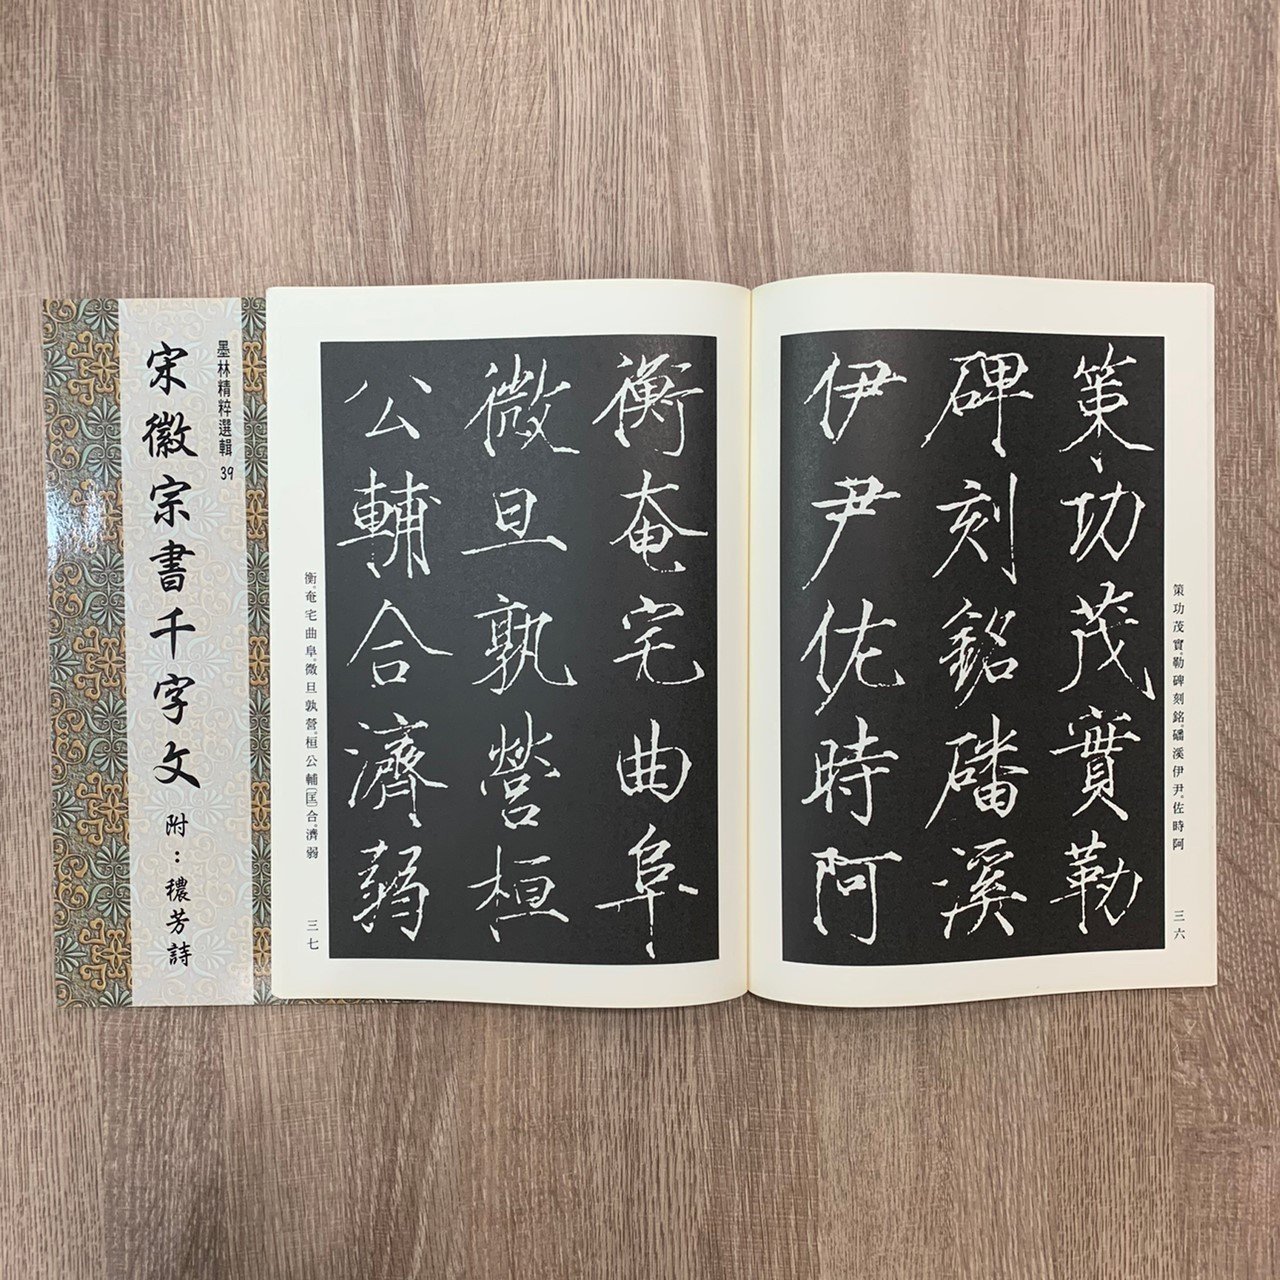 墨林精粹選輯 39
宋徽宗書千字文 附：穠芳詩
策功茂實。勒碑刻銘。磻溪伊尹。佐時阿
三六
策功茂實勒
碑刻銘磻溪
伊尹佐時阿
衡奄宅曲阜
微旦孰營桓
公輔合濟弱
衡。奄宅曲阜。微旦孰營。桓公輔〔匡〕合。濟弱
三七